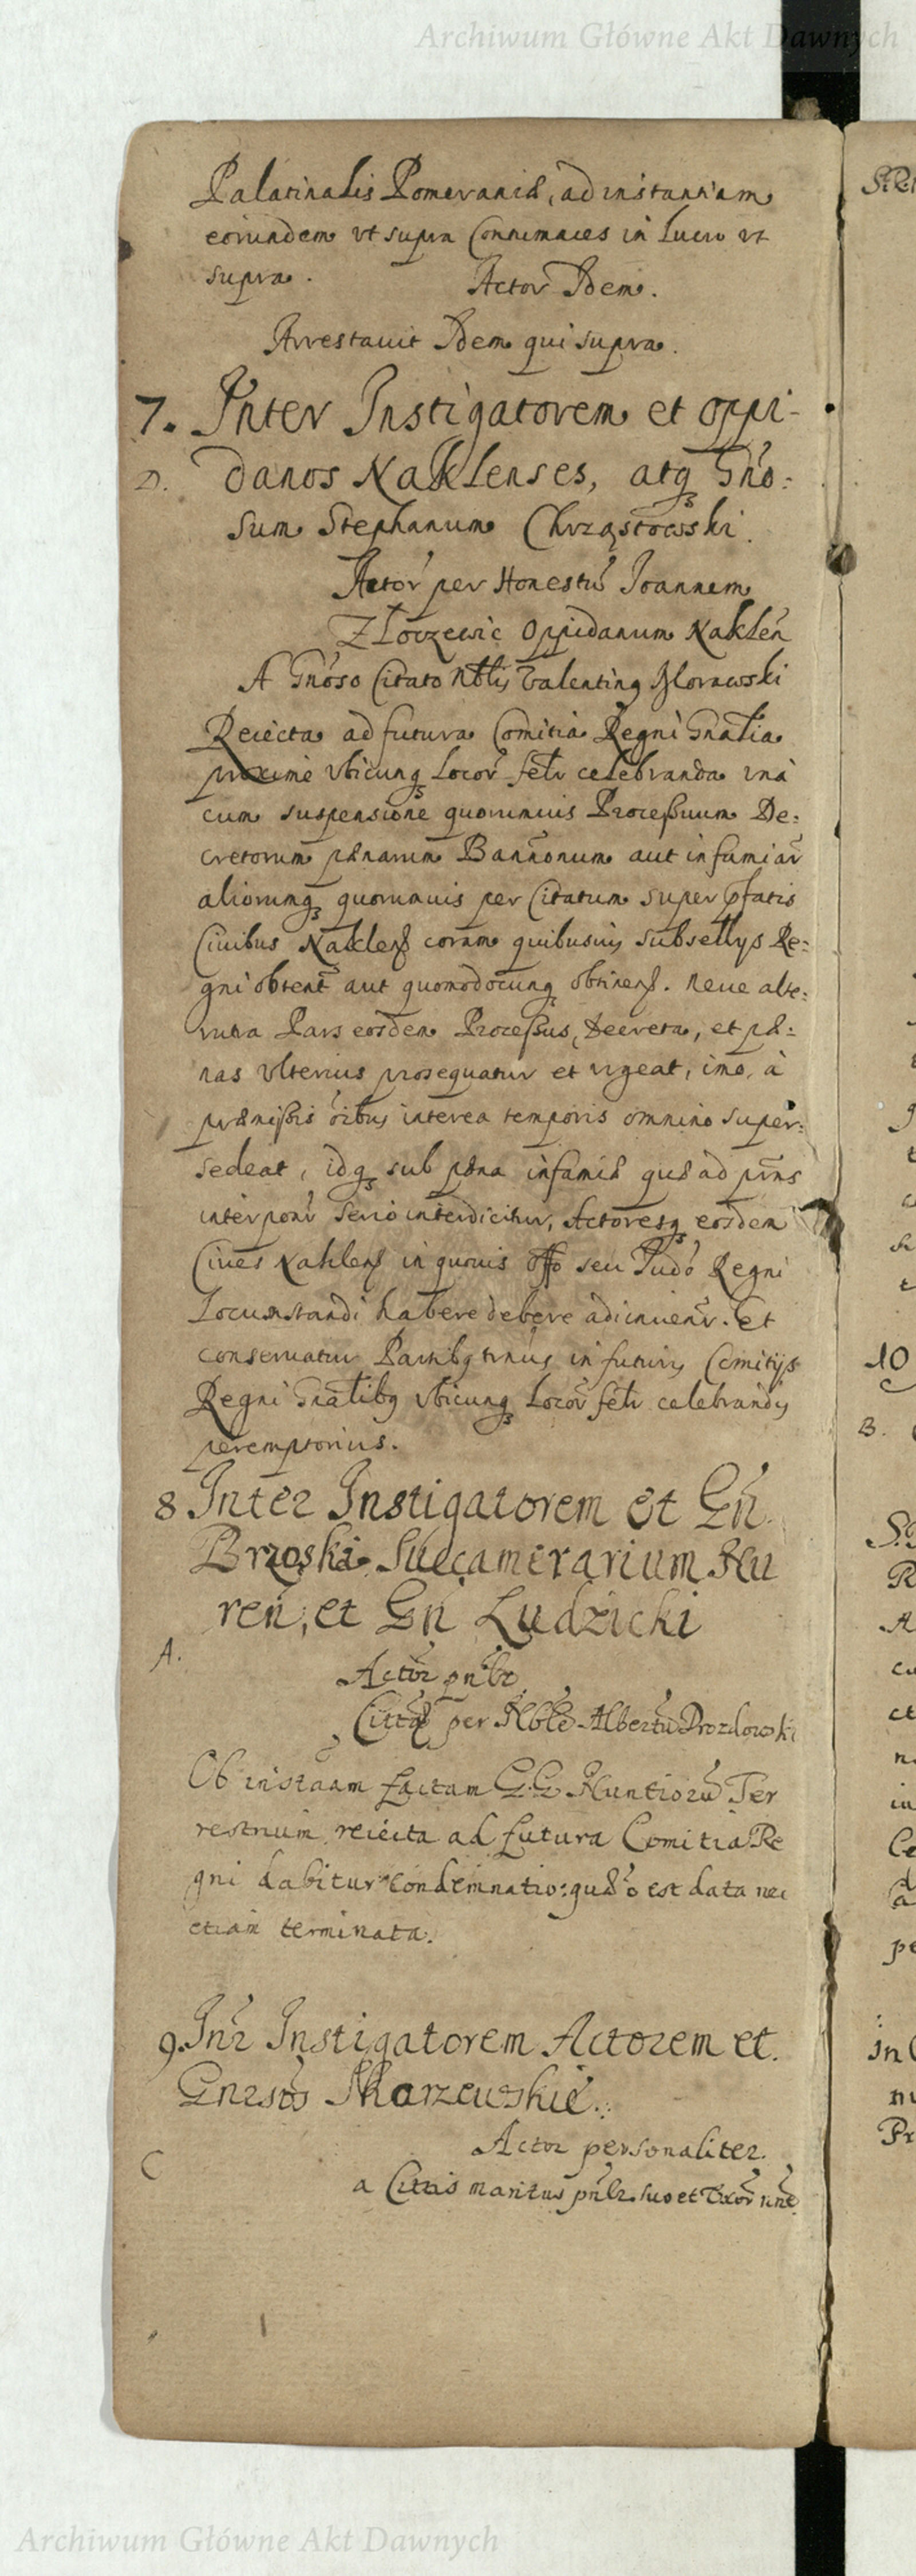 Archiwum Główne Akt Dawnych
Palatinalis Pomeraniæ, ad instantiam
eorundem vt supra Contumaces in Lucro vt
supra. Actor Idem.
Arrestauit Idem qui supra.
7. Inter Instigatorem et oppi-
D. danos Naklenses, atq Gno:
sum Stephanum Chrząstowski.
Actor per Honestū Joannem
Złoczewic Oppidanum Naklen
A Gnoso Citato Nblis Valentinq
Reiecta ad futura Comitia Regni Gnalia
proxime vbicunq Locor felr celebranda vna
cum suspensione quorumuis Processuum De:
cretorum pænarum Bannonum aut infamiar
aliorumq quorumuis per Citatum super pfatis
Ciuibus Naklen coram quibusuis subsellys Re:
gni obtent aut quomodocunq obtinen. neue alte:
rutra Pars eosdem Processus, Decreta, et pæ:
nas vlterius prosequatur et vrgeat, imo, à
præmissis oibus interea temporis omnino super:
sedeat, idq sub pæna infamiæ quæ ad pmns
interponr serio interdicitur, Actoresq eosdem
Ciues Naklen in quouis offo seu Judo Regni
Locumstandi habere debere adinuenr. Et
conseruatur Partibq trnus in futuris Comitijs
Regni Gnalibq vbicunq Locor felr celebrandis
peremptorius.
8 Inter Instigatorem et Gn
Brzoski Succamerarium Nu
ren, et Gn Ludzicki
A.
Actor pnbr
Cittq per Nble Albertū Drozdowski
Ob instaam factam G.G Nuntiorū Ter
restrium reiecta ad futura Comitia Re
gni dabitur condemnatio: quæ o est data nec
etiam terminata.
9. Inr Instigatorem Actorem et
Gnrsos Skarzewskie.
Actor personaliter.
C
a Cittis maritus pnlr suo et Vxor nne
Archiwum Główne Akt Dawnych